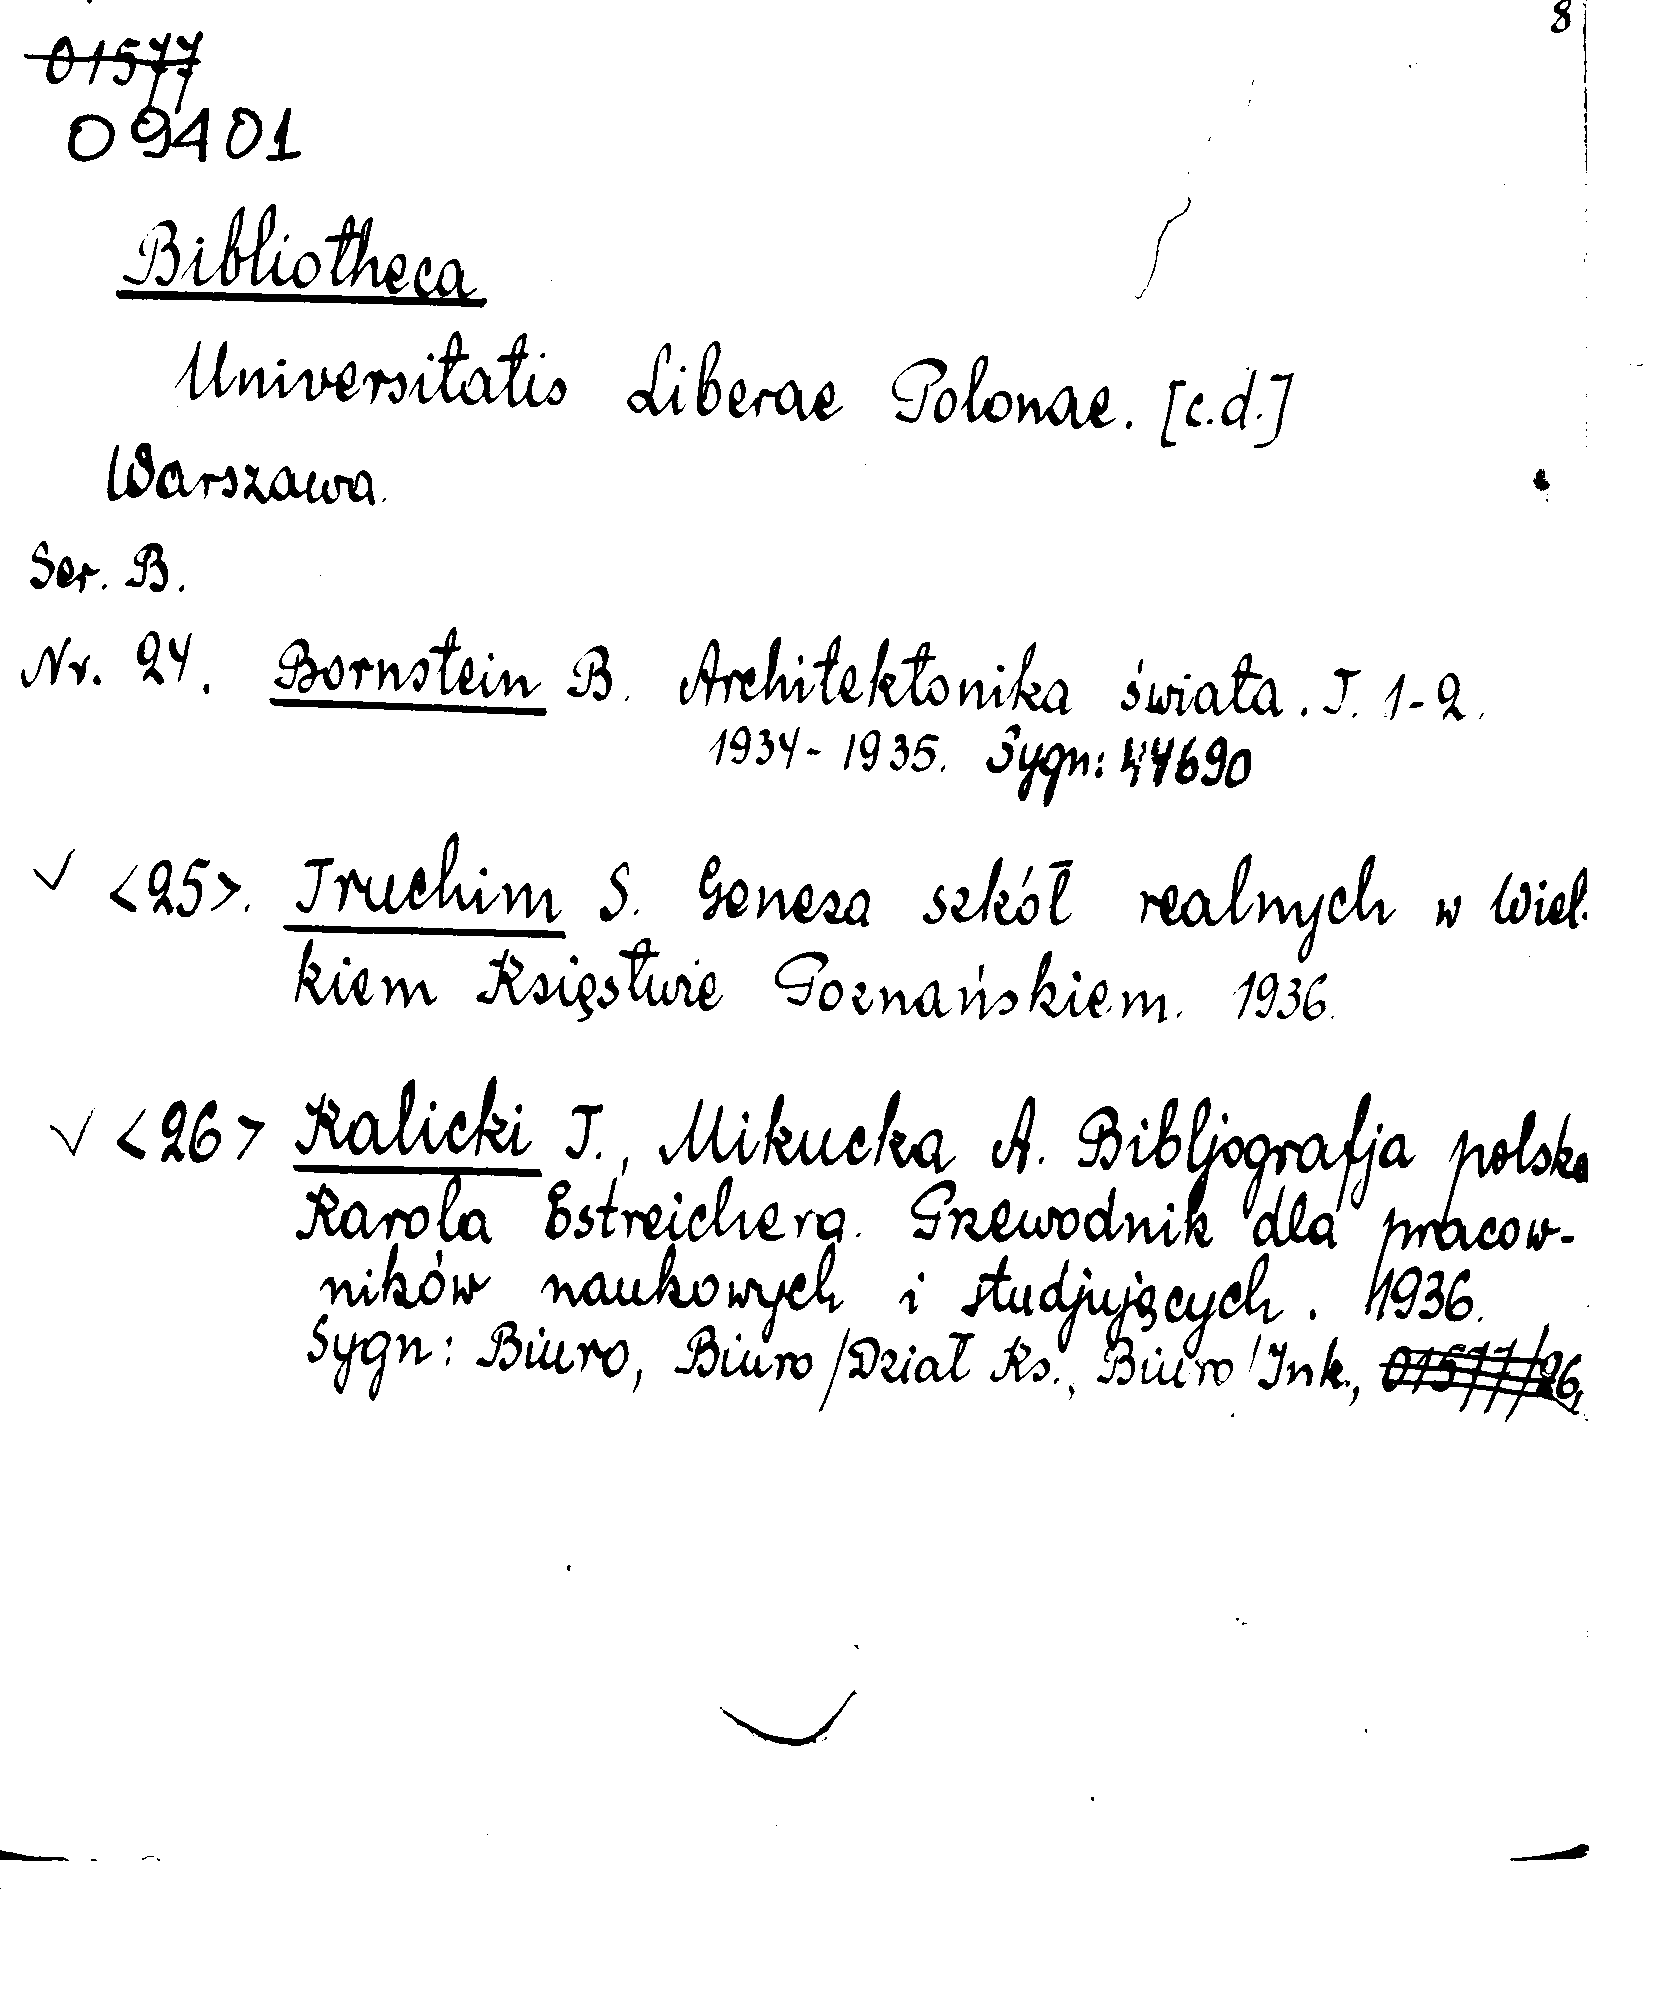 8
01577
09401
Bibliotheca
Universitatis Liberae Polonae. [c.d.]
Warszawa.
Ser. B.
Nr. 24. Bornstein B. Architektonika świata. T. 1-2.
1934-1935. Sygn: 44690
<25>. Truchim S. Geneza szkół realnych w Wiel-
kiem Księstwie Poznańskiem. 1936.
<26> Kalicki T., Mikucka A. Bibljografja polska
Karola Estreichera. Przewodnik dla pracow-
ników naukowych i studjujących. 1936.
Sygn: Biuro, Biuro/Dział Ks., Biuro/Ink., 01577/26,